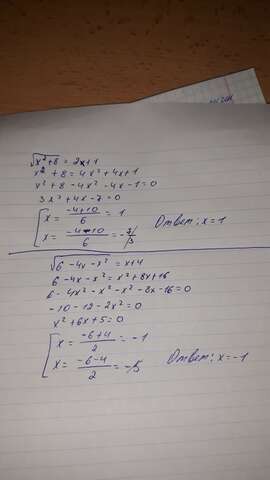 √x²+8 = 2x+1
x² + 8 = 4x² + 4x + 1
x² + 8 - 4x² - 4x - 1 = 0
3x² + 4x - 7 = 0
[ x = (-4+10)/6 = 1
[ x = (-4-10)/6 = -7/3 Ответ: x = 1
√6 - 4x - x² = x+4
6 - 4x - x² = x² + 8x + 16
6 - 4x² - x² - x² - 8x - 16 = 0
-10 - 12 - 2x² = 0
x² + 6x + 5 = 0
[ x = (-6+4)/2 = -1
[ x = (-6-4)/2 = -5 Ответ: x = -1